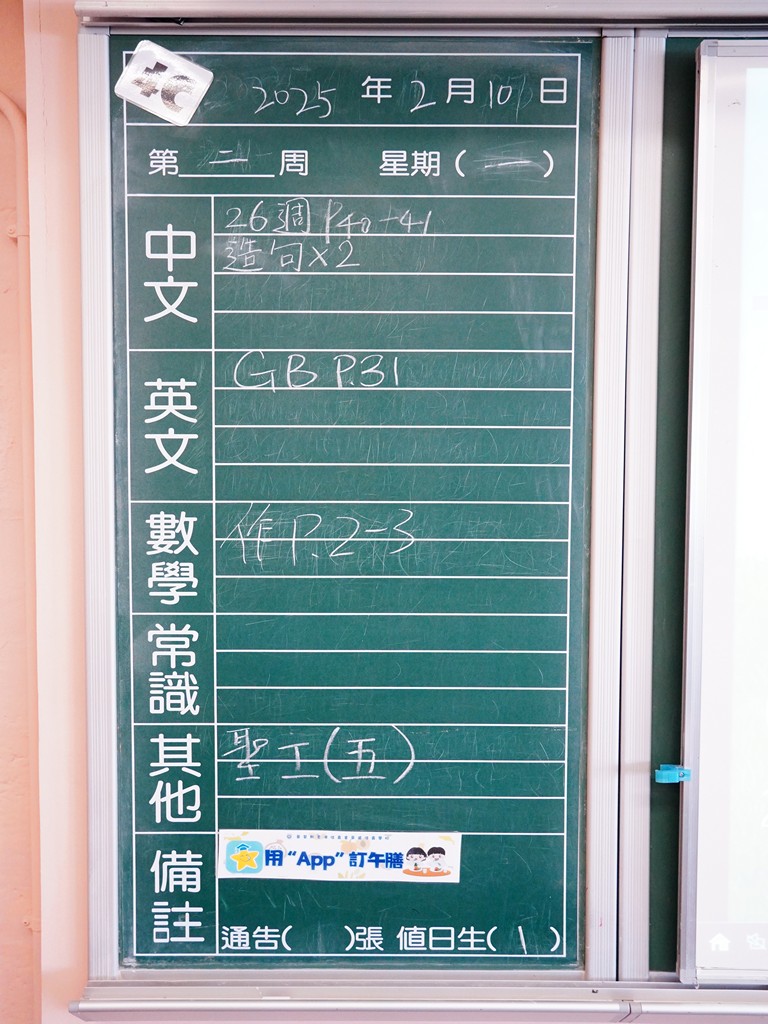 4C
2025 年 2 月 10 日
第 二 周 星期 ( 一 )
中文
26週 P40-41
造句x2
英文
GB P.31
數學
作P.2-3
常識
其他
聖工(五)
備註
用 “App” 訂午膳
通告( )張 值日生( 1 )